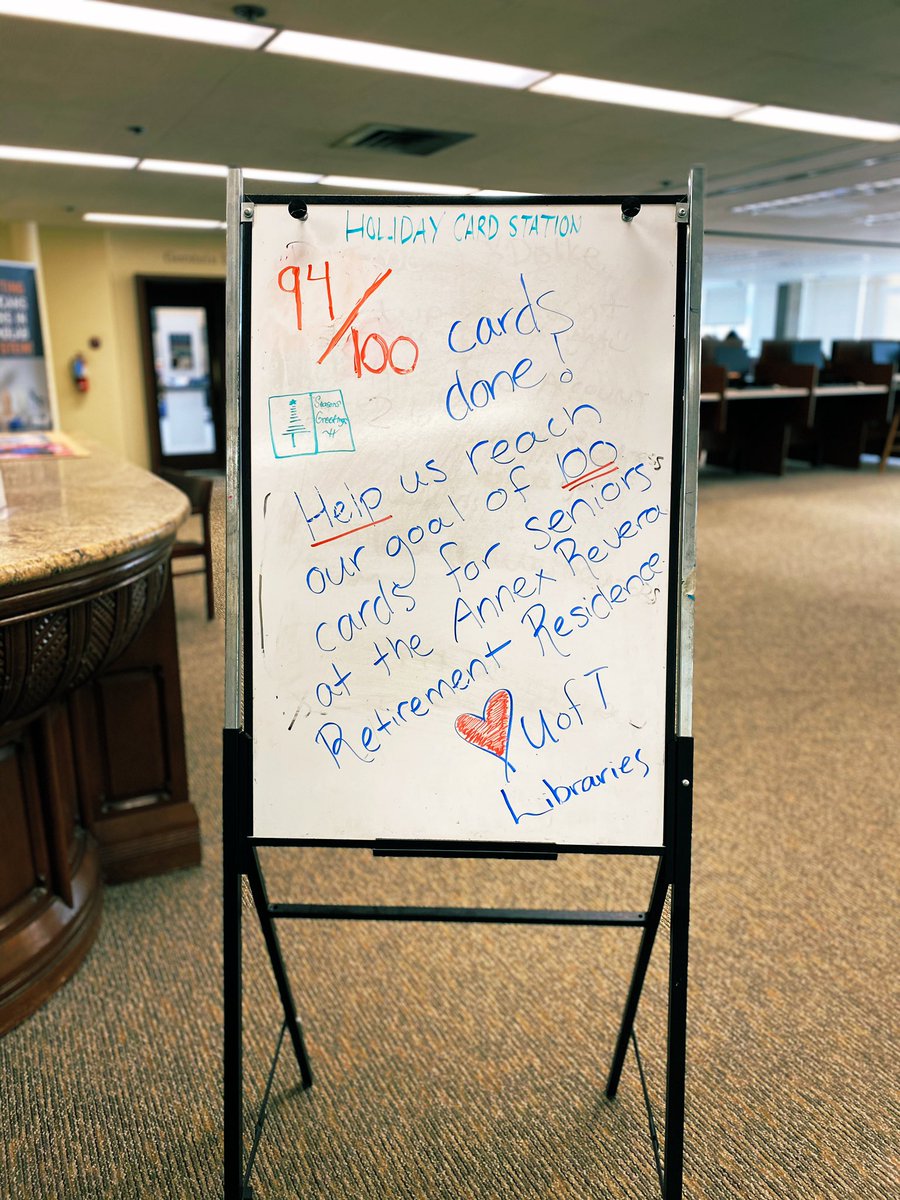 HOLIDAY CARD STATION
94/100 cards
done!
Seasons
Greetings
Help us reach
our goal of 100
cards for seniors
at the Annex Revera
Retirement Residence
UofT
Libraries